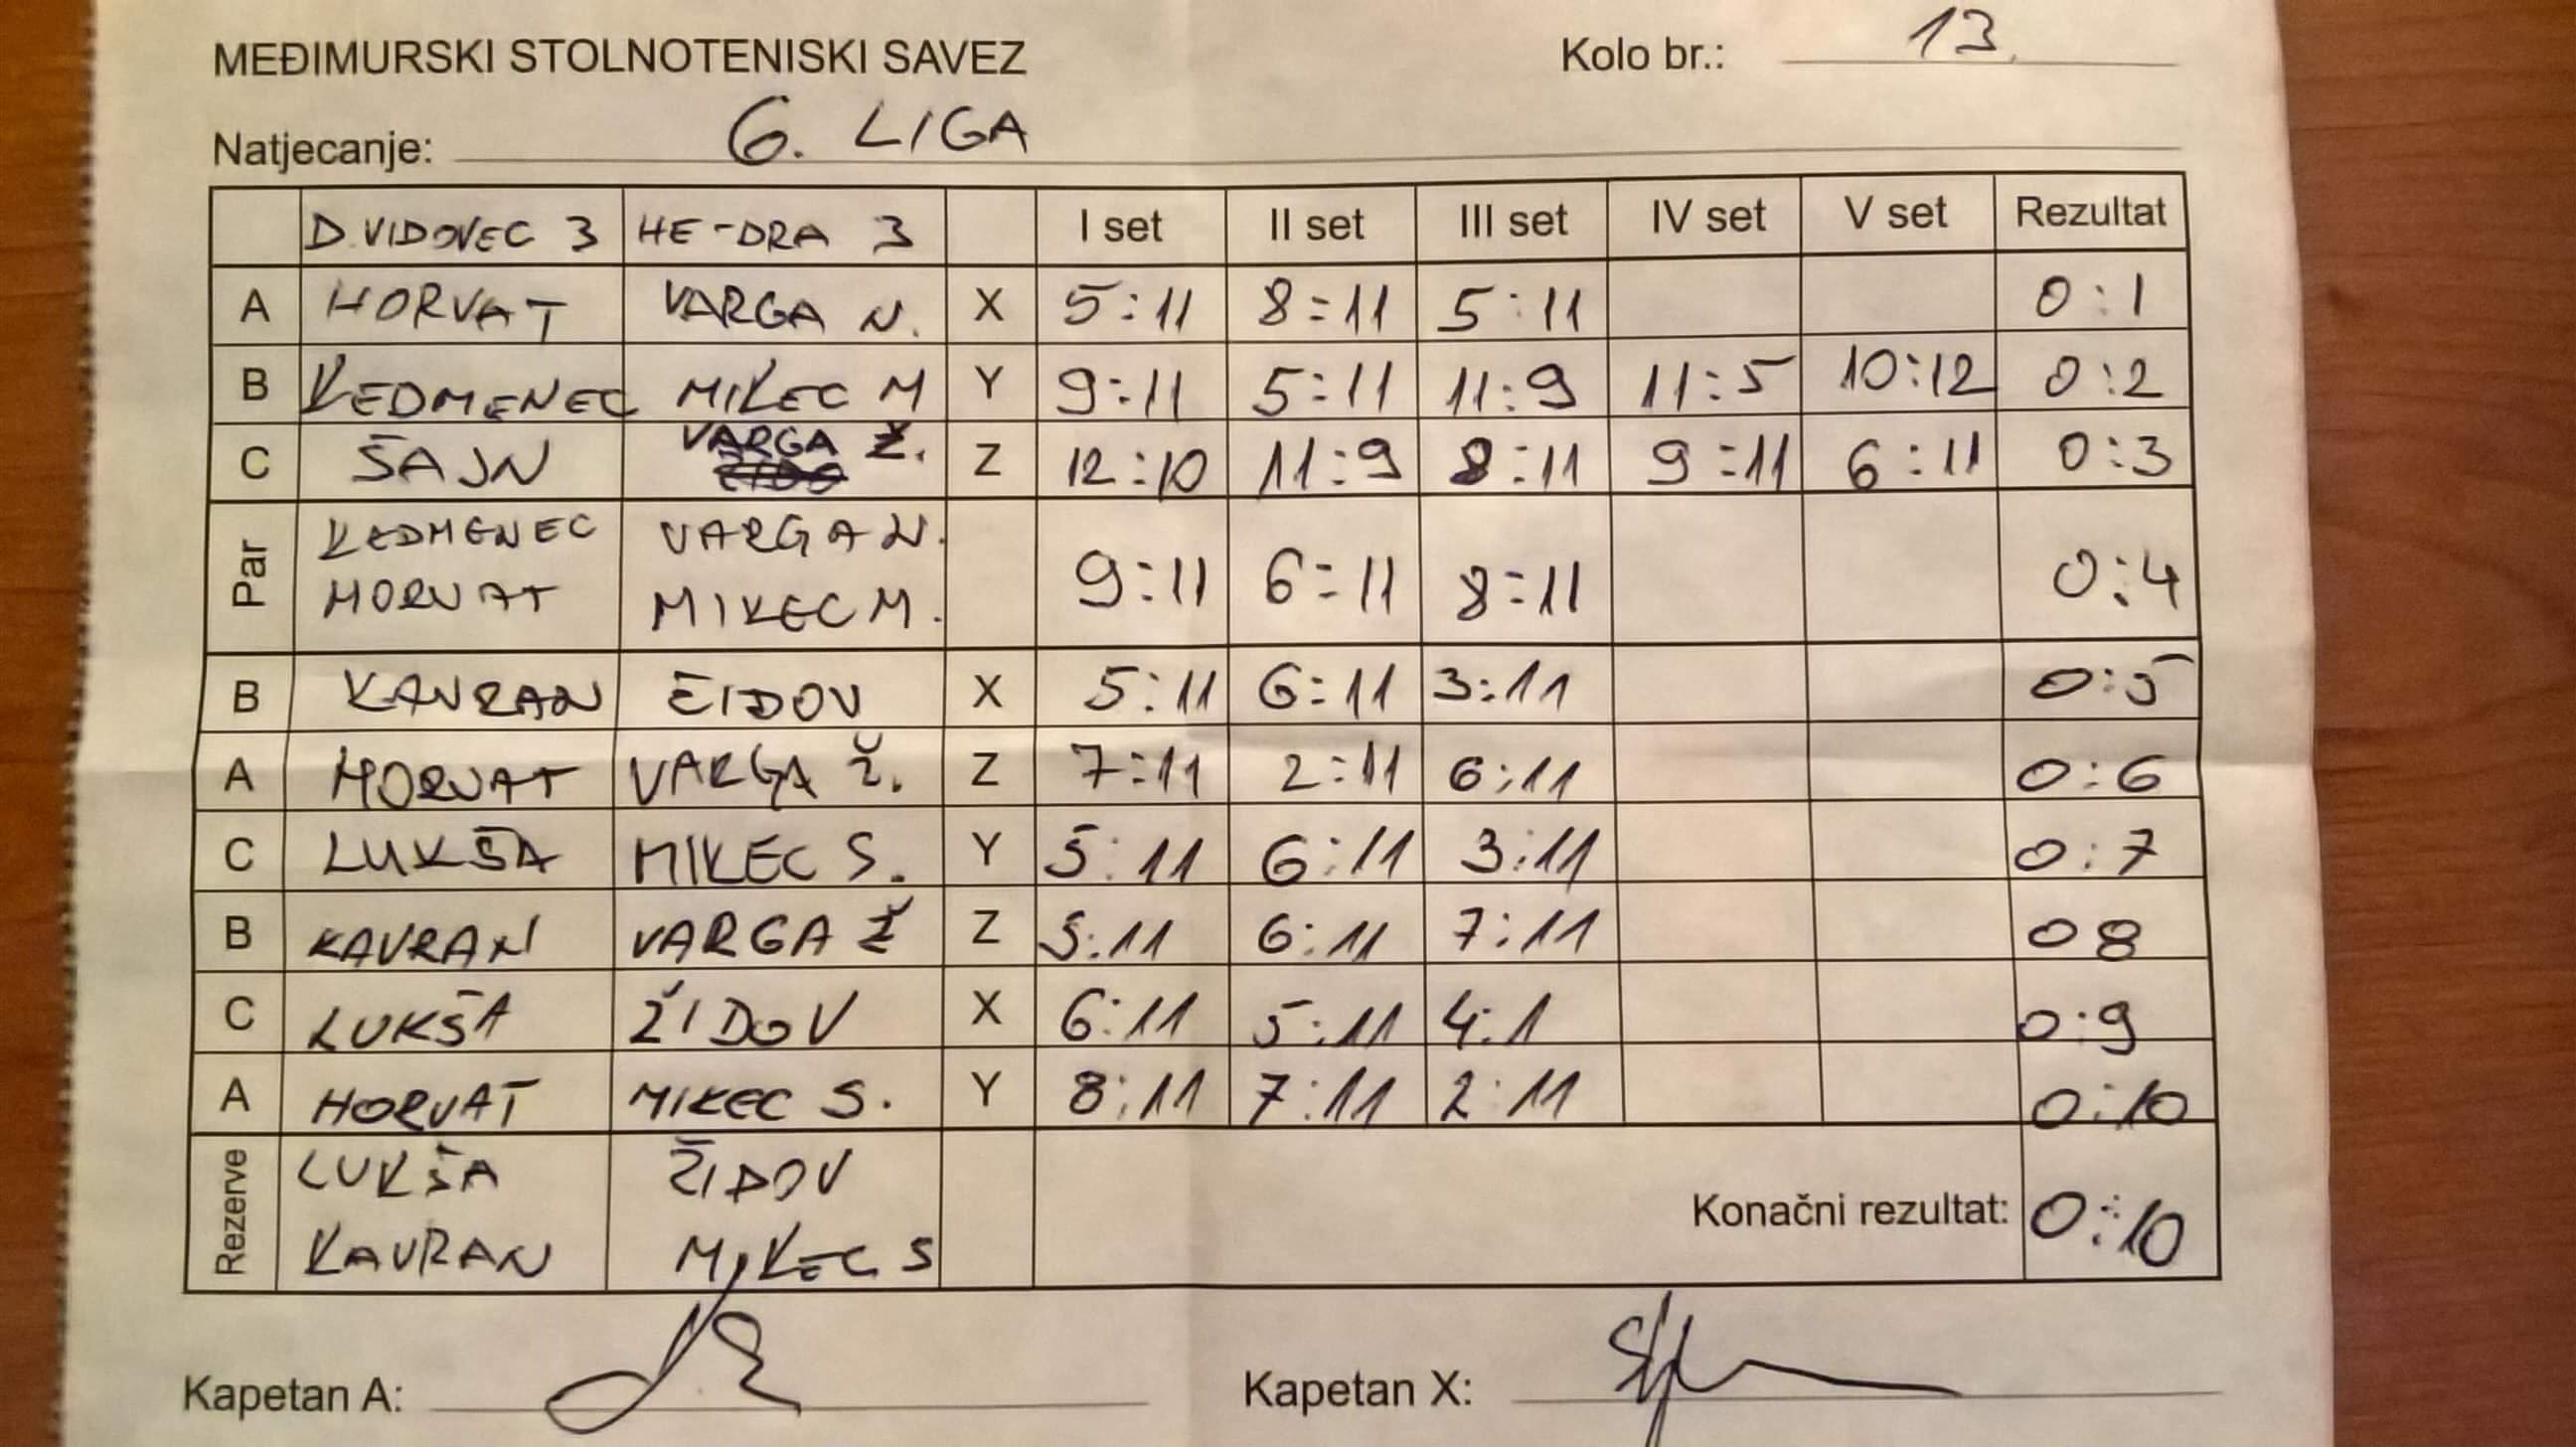 MEĐIMURSKI STOLNOTENISKI SAVEZ Kolo br.: 13.
Natjecanje: 6. LIGA
D. VIDOVEC 3 HE-DRA 3 I set II set III set IV set V set Rezultat
A HORVAT VARGA N. X 5:11 8:11 5:11 0:1
B KEDMENEC MIKEC M Y 9:11 5:11 11:9 11:5 10:12 0:2
C ŠAJN VARGA Ž. Z 12:10 11:9 8:11 9:11 6:11 0:3
Par KEDMENEC VARGA N. 9:11 6:11 8:11 0:4
HORVAT MIKEC M.
B KAVRAN ŽIDOV X 5:11 6:11 3:11 0:5
A HORVAT VARGA Ž. Z 7:11 2:11 6:11 0:6
C LUKŠA MIKEC S. Y 5:11 6:11 3:11 0:7
B KAVRAN VARGA Ž Z 5:11 6:11 7:11 0 8
C LUKŠA ŽIDOV X 6:11 5:11 4:1 0:9
A HORVAT MIKEC S. Y 8:11 7:11 2:11 0:10
Rezerve LUKŠA ŽIDOV Konačni rezultat: 0:10
KAVRAN MIKEC S
Kapetan A: Kapetan X: